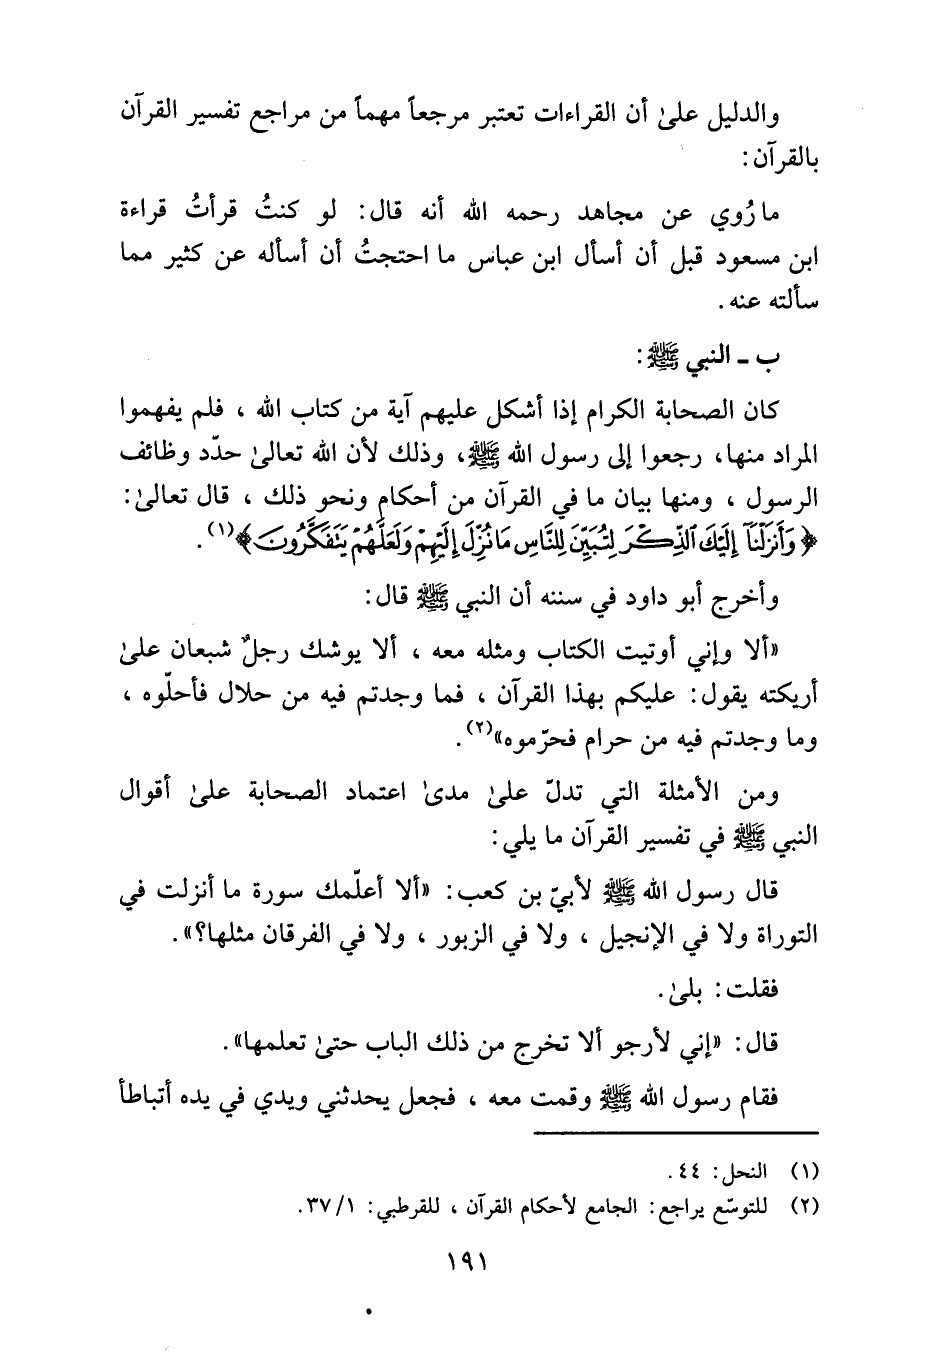 والدليل علىٰ أن القراءات تعتبر مرجعاً مهماً من مراجع تفسير القرآن
بالقرآن:
ما رُوي عن مجاهد رحمه الله أنه قال: لو كنتُ قرأتُ قراءة
ابن مسعود قبل أن أسأل ابن عباس ما احتجتُ أن أسأله عن كثير مما
سألته عنه.
ب ـ النبي ﷺ:
كان الصحابة الكرام إذا أشكل عليهم آية من كتاب الله ، فلم يفهموا
المراد منها، رجعوا إلى رسول الله ﷺ، وذلك لأن الله تعالىٰ حدّد وظائف
الرسول ، ومنها بيان ما في القرآن من أحكام ونحو ذلك ، قال تعالىٰ:
﴿ وَأَنزَلْنَآ إِلَيْكَ ٱلذِّكْرَ لِتُبَيِّنَ لِلنَّاسِ مَا نُزِّلَ إِلَيْهِمْ وَلَعَلَّهُمْ يَتَفَكَّرُونَ ﴾(١).
وأخرج أبو داود في سننه أن النبي ﷺ قال:
«ألا وإني أوتيت الكتاب ومثله معه ، ألا يوشك رجلٌ شبعان علىٰ
أريكته يقول: عليكم بهذا القرآن ، فما وجدتم فيه من حلال فأحلّوه ،
وما وجدتم فيه من حرام فحرّموه»(٢).
ومن الأمثلة التي تدلّ علىٰ مدىٰ اعتماد الصحابة علىٰ أقوال
النبي ﷺ في تفسير القرآن ما يلي:
قال رسول الله ﷺ لأبيّ بن كعب: «ألا أعلّمك سورة ما أنزلت في
التوراة ولا في الإنجيل ، ولا في الزبور ، ولا في الفرقان مثلها؟».
فقلت: بلىٰ.
قال: «إني لأرجو ألا تخرج من ذلك الباب حتىٰ تعلمها».
فقام رسول الله ﷺ وقمت معه ، فجعل يحدثني ويدي في يده أتباطأ
(١) النحل: ٤٤.
(٢) للتوسّع يراجع: الجامع لأحكام القرآن ، للقرطبي: ٣٧/١.
١٩١